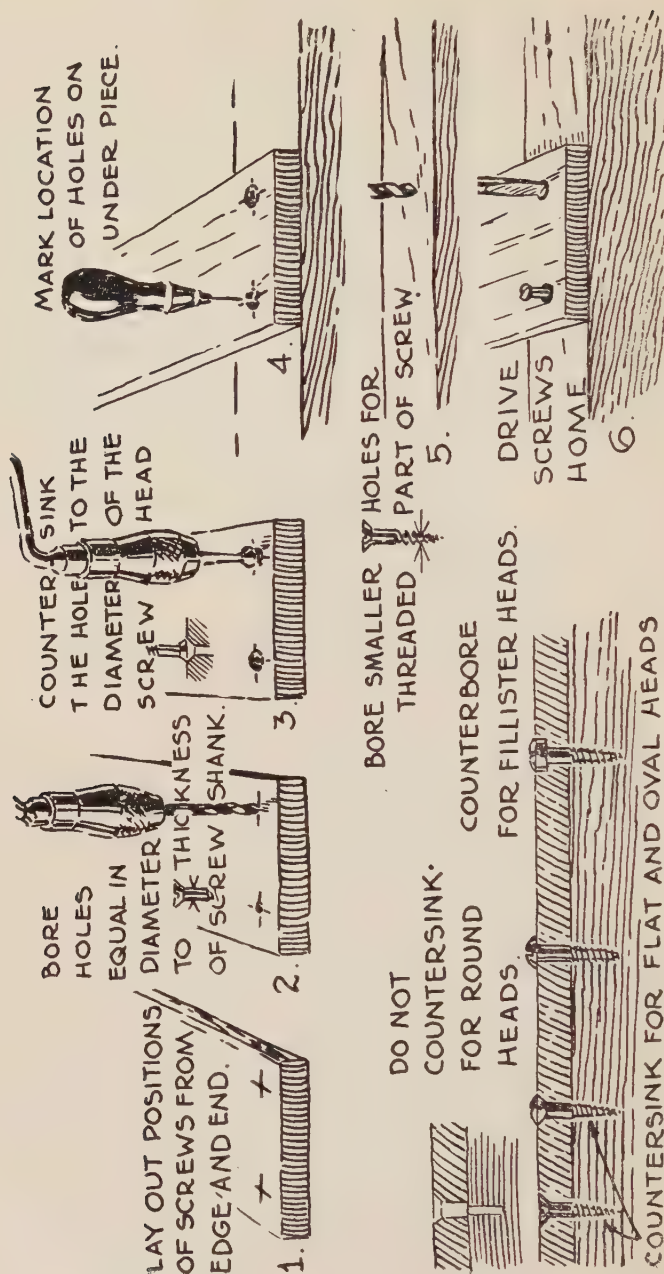 LAY OUT POSITIONS
OF SCREWS FROM
EDGE AND END.
1.
BORE
HOLES
EQUAL IN
DIAMETER
TO THICKNESS
OF SCREW SHANK.
2.
COUNTER SINK
THE HOLE TO THE
DIAMETER OF THE
SCREW HEAD
3.
MARK LOCATION
OF HOLES ON
UNDER PIECE.
4.
BORE SMALLER HOLES FOR
THREADED PART OF SCREW
5.
DRIVE
SCREWS
HOME
6.
DO NOT
COUNTERSINK
FOR ROUND
HEADS.
COUNTERBORE
FOR FILLISTER HEADS.
COUNTERSINK FOR FLAT AND OVAL HEADS